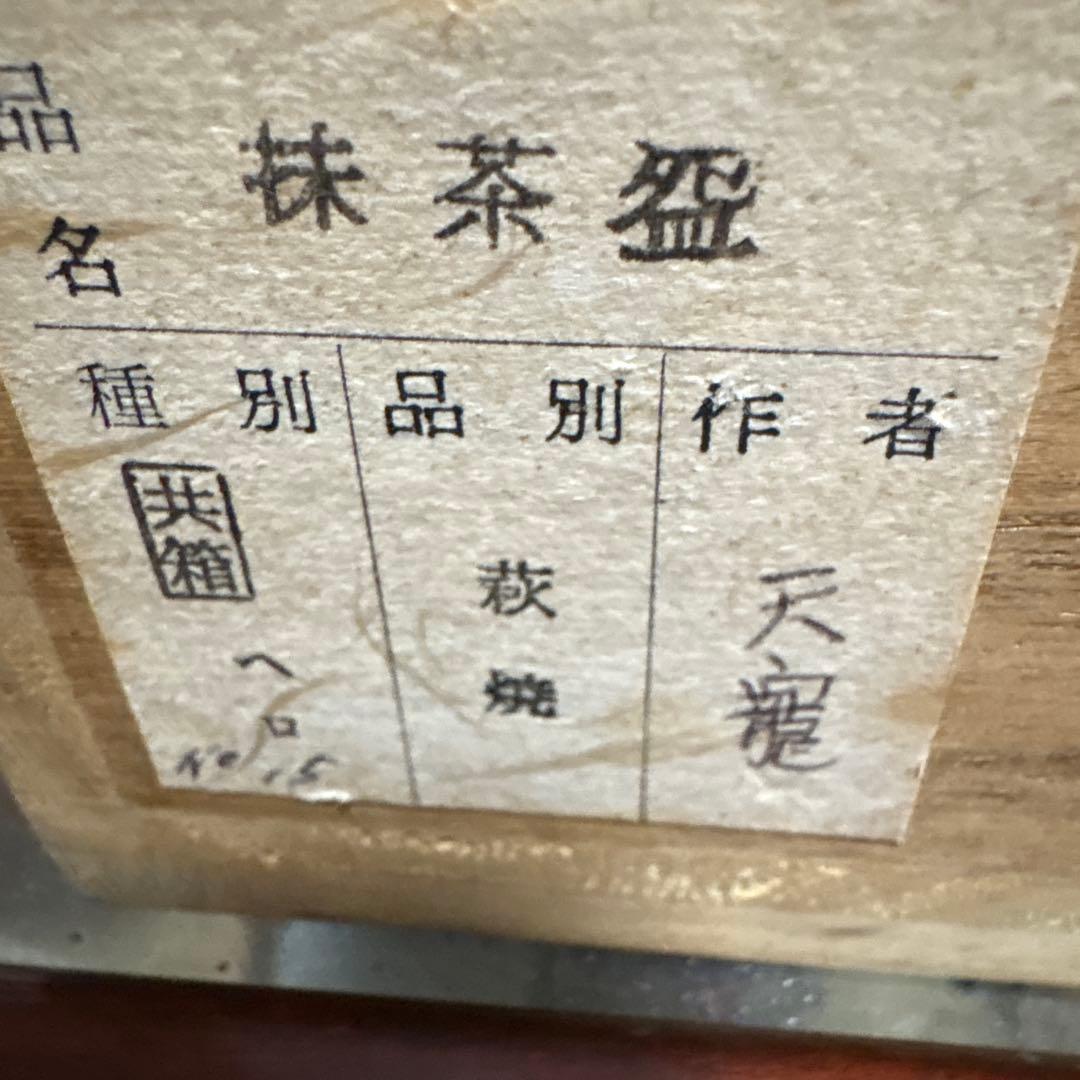 品名
抹茶盌
種別
品別
作者
共箱
ヘロ
No 15
萩焼
天寵